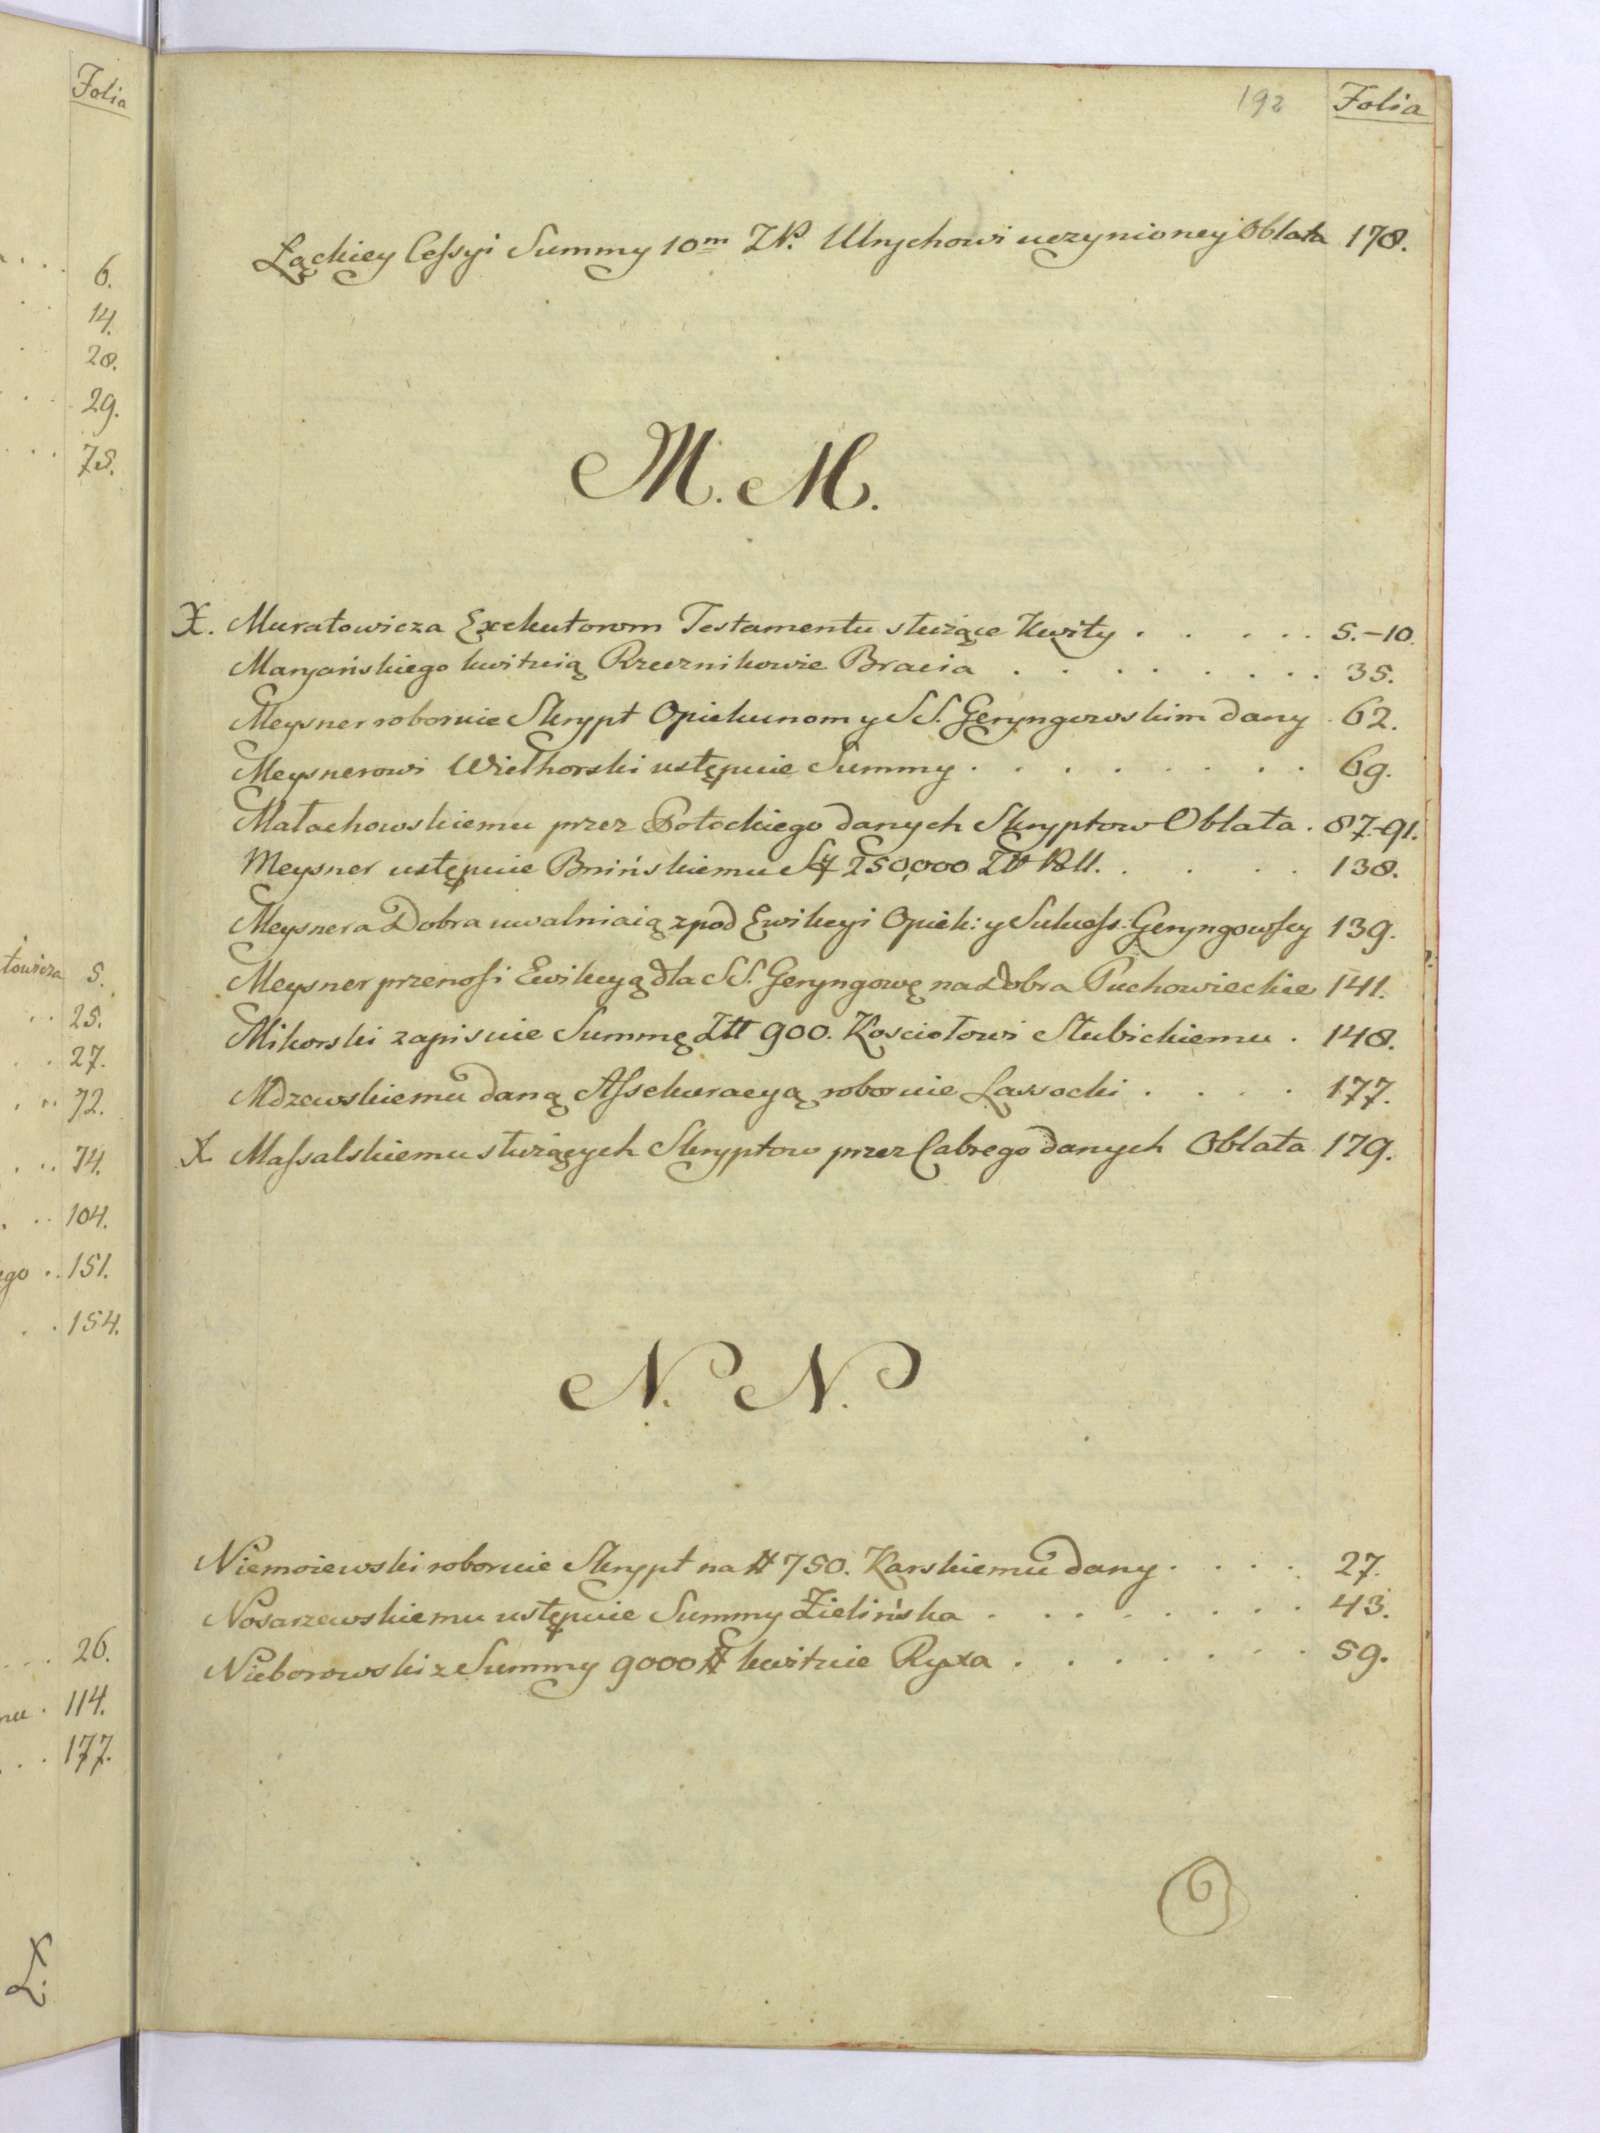 Folia
6.
14.
28.
29.
78.
towicza 5.
25.
27.
72.
74.
104.
ego 151.
154.
26.
mu 114.
177.
Ł.
192 Folia
Łąckiey Cessyi Summy 10m Zł. Ulrychowi uczynioney Oblata 178.
M. M.
X. Muratowicza Exekutorom Testamentu służące Kwity . . . . . 5.-10.
Maryańskiego kwituią Rzeznikowie Bracia . . . . . . . 35.
Meysner roboruie Skrypt Opiekunom y SS. Geryngowskim dany . 62.
Meysnerowi Wielhorski ustępuie Summy . . . . . . . . 69.
Małachowskiemu przez Potockiego danych Skryptow Oblata . 87.-91.
Meysner ustępuie Bnińskiemu 250,000 . . . . 138.
Meysnera Dobra uwalniaią zpod Ewikcyi Opiek: y Sukcess: Geryngowscy 139.
Meysner przenosi Ewikcyą dla SS. Geryngowę na Dobra Puchowieckie 141.
Mikorski zapisuie Summę Zł 900. Kosciołowi Słubickiemu . 148.
Mdzewskiemu daną Assekuracyą roboruie Lassocki . . . . 177.
X. Massalskiemu służących Skryptow przez Cabrego danych Oblata 179.
N. N.
Niemoiewski roboruie Skrypt na # 750. Karskiemu dany . . . . 27.
Nosarzewskiemu ustępuie Summy Zielińska . . . . . . . 43.
Nieborowski z Summy 9000 # kwituie Ryxa . . . . . . . 59.